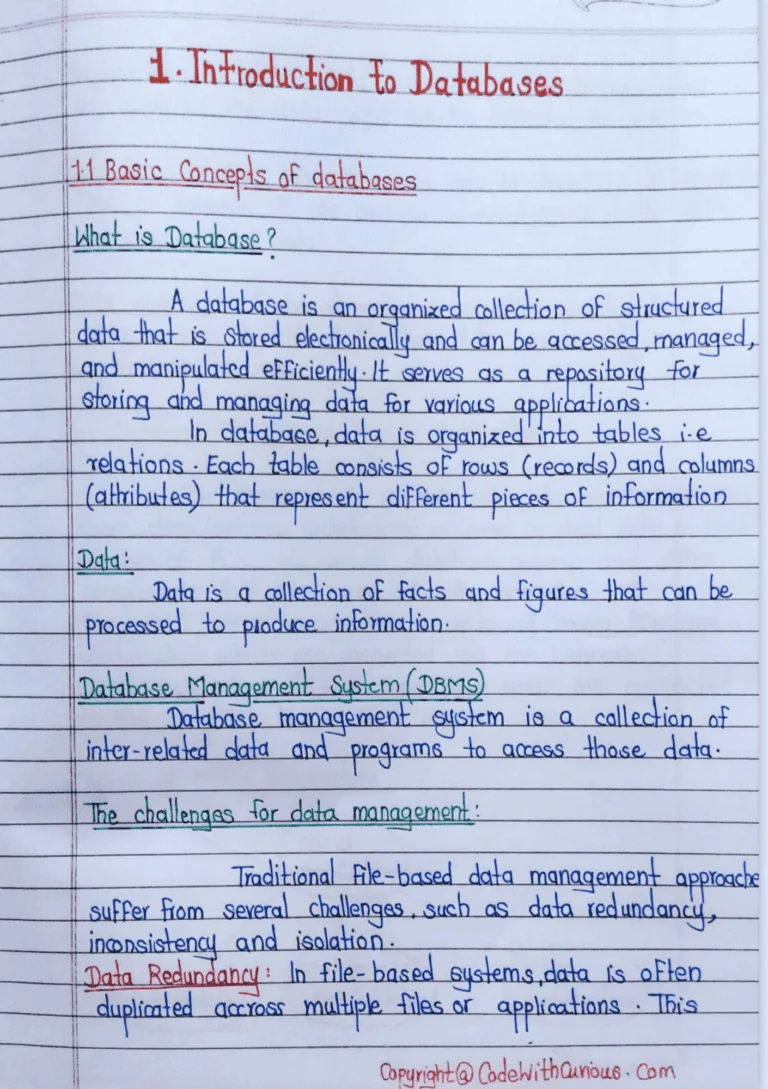 1. Introduction to Databases
1.1 Basic Concepts of databases
What is Database?
A database is an organized collection of structured
data that is stored electronically and can be accessed, managed,
and manipulated efficiently. It serves as a repository for
storing and managing data for various applications.
In database, data is organized into tables i.e
relations. Each table consists of rows (records) and columns
(attributes) that represent different pieces of information
Data:
Data is a collection of facts and figures that can be
processed to produce information.
Database Management System (DBMS)
Database management system is a collection of
inter-related data and programs to access those data.
The challenges for data management:
Traditional file-based data management approache
suffer from several challenges, such as data redundancy,
inconsistency and isolation.
Data Redundancy: In file-based systems, data is often
duplicated accross multiple files or applications. This
Copyright@CodeWithCurious.Com